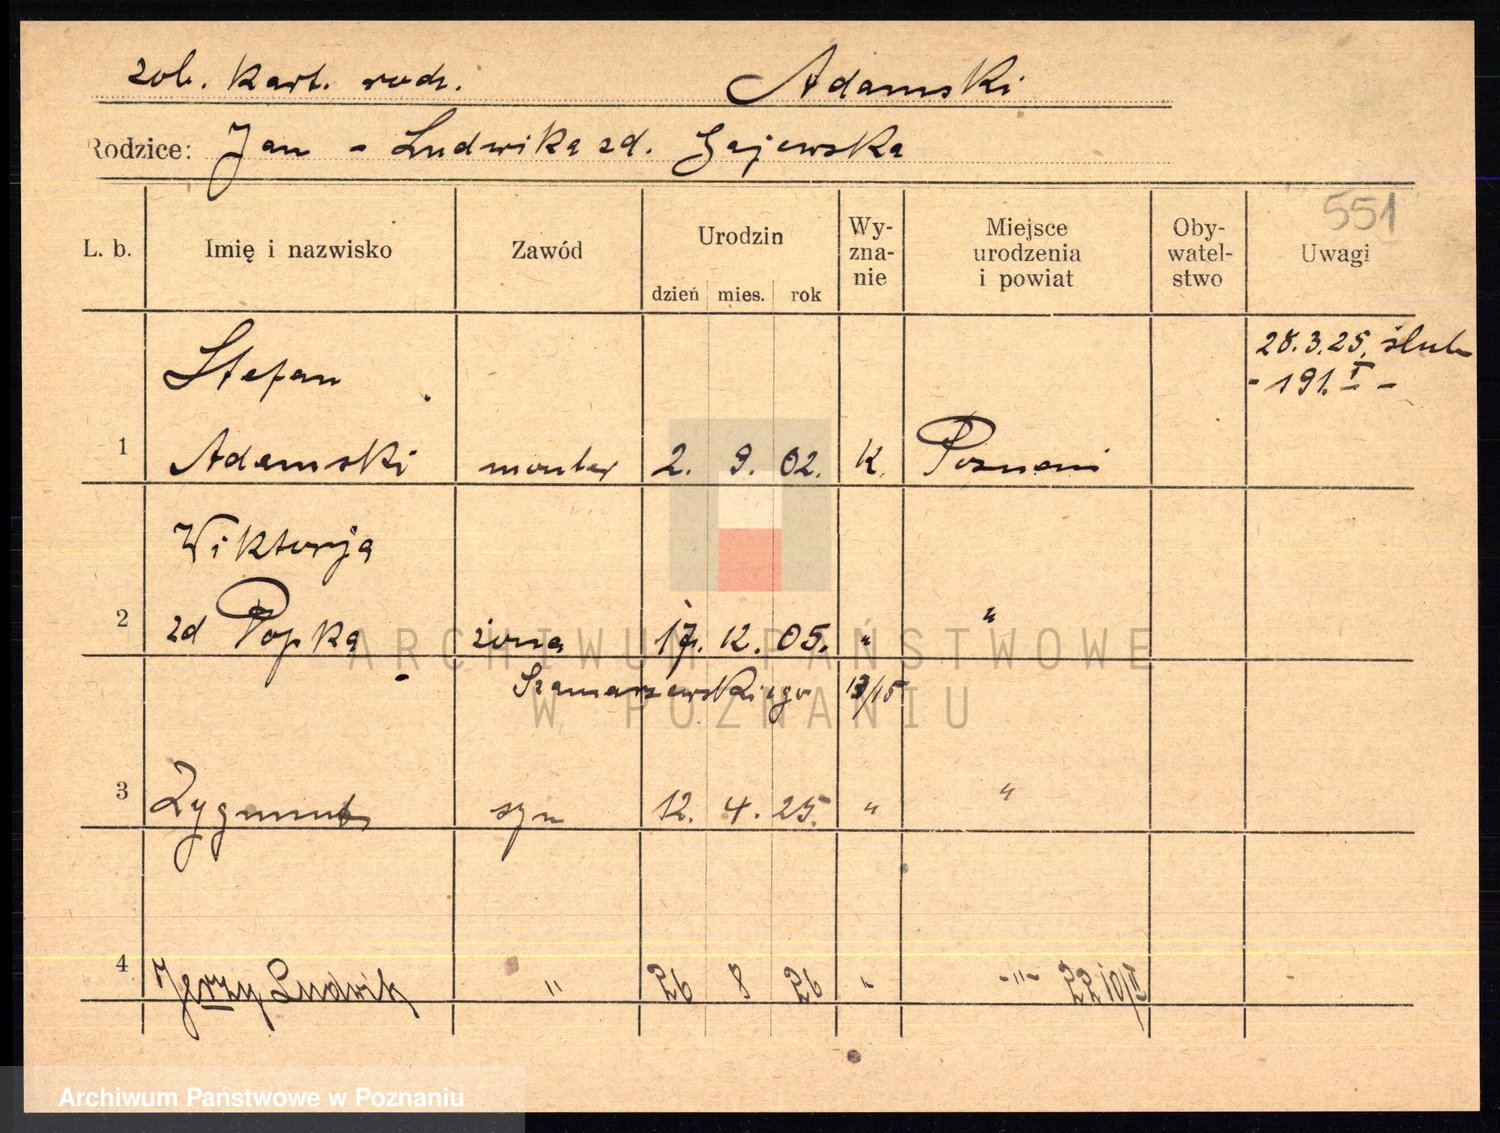 zob. Kart. rodz. Adamski
Rodzice: Jan - Ludwika zd. Gajewska
551
L. b. Imię i nazwisko Zawód Urodzin Wy-zna-nie Miejsce urodzenia i powiat Oby-watel-stwo Uwagi
dzień mies. rok
28.3.25. ślub
- 191. I -
Stefan
1 Adamski monter 2. 9. 02. K. Poznań
Wiktorja
2 zd Popka żona 17. 12. 05. " "
Szamarzewskiego 13/15
3 Zygmunt syn 12. 4. 25. " "
4 Jerzy Ludwik " 26 8 26 " -"-
ARCHIWUM PAŃSTWOWE
W POZNANIU
Archiwum Państwowe w Poznaniu